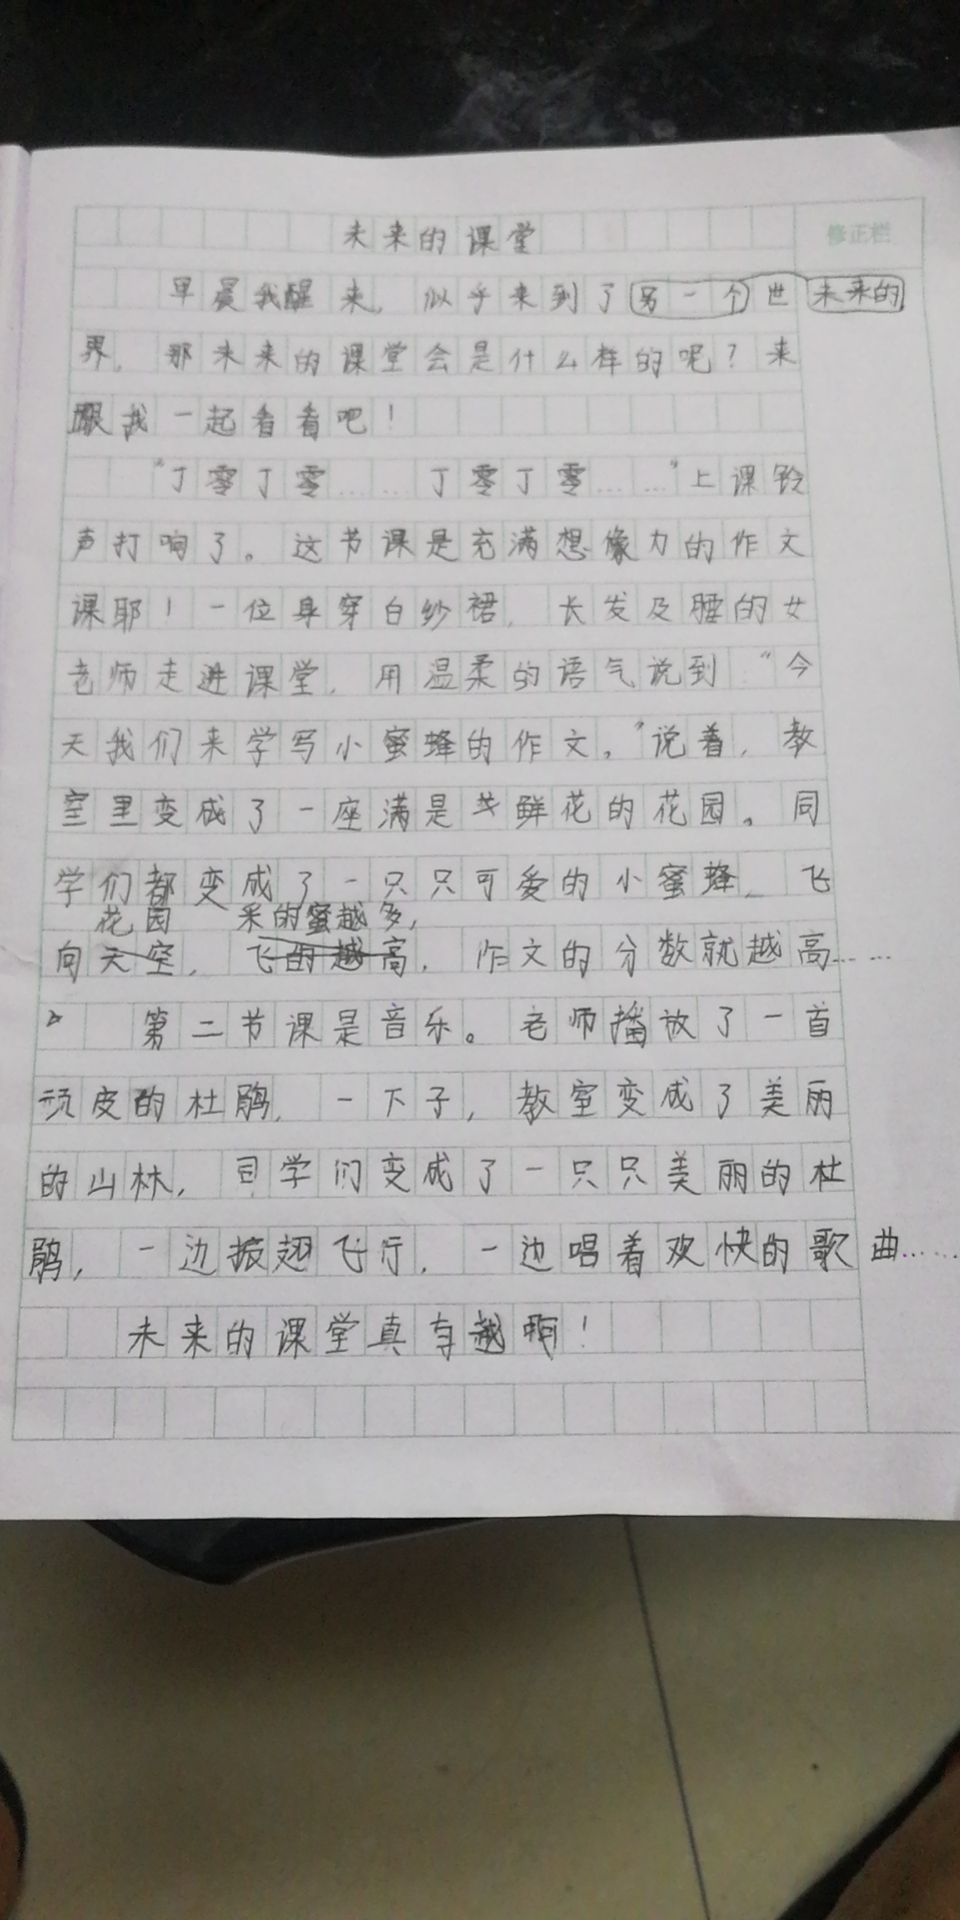 未来的课堂
修正栏
早晨我醒来,似乎来到了另一个世 未来的
界,那未来的课堂会是什么样的呢?来
跟我一起看看吧!
“丁零丁零……丁零丁零……”上课铃
声打响了。这节课是充满想像力的作文
课耶!一位身穿白纱裙,长发及腰的女
老师走进课堂,用温柔的语气说到“今
天我们来学写小蜜蜂的作文。”说着,教
室里变成了一座满是鲜花的花园。同
学们都变成了一只只可爱的小蜜蜂,飞
花园 采的蜜越多,
向天空,飞的越高,作文的分数就越高……
第二节课是音乐。老师播放了一首
顽皮的杜鹃,一下子,教室变成了美丽
的山林,同学们变成了一只只美丽的杜
鹃,一边振翅飞行,一边唱着欢快的歌曲……
未来的课堂真有趣啊!